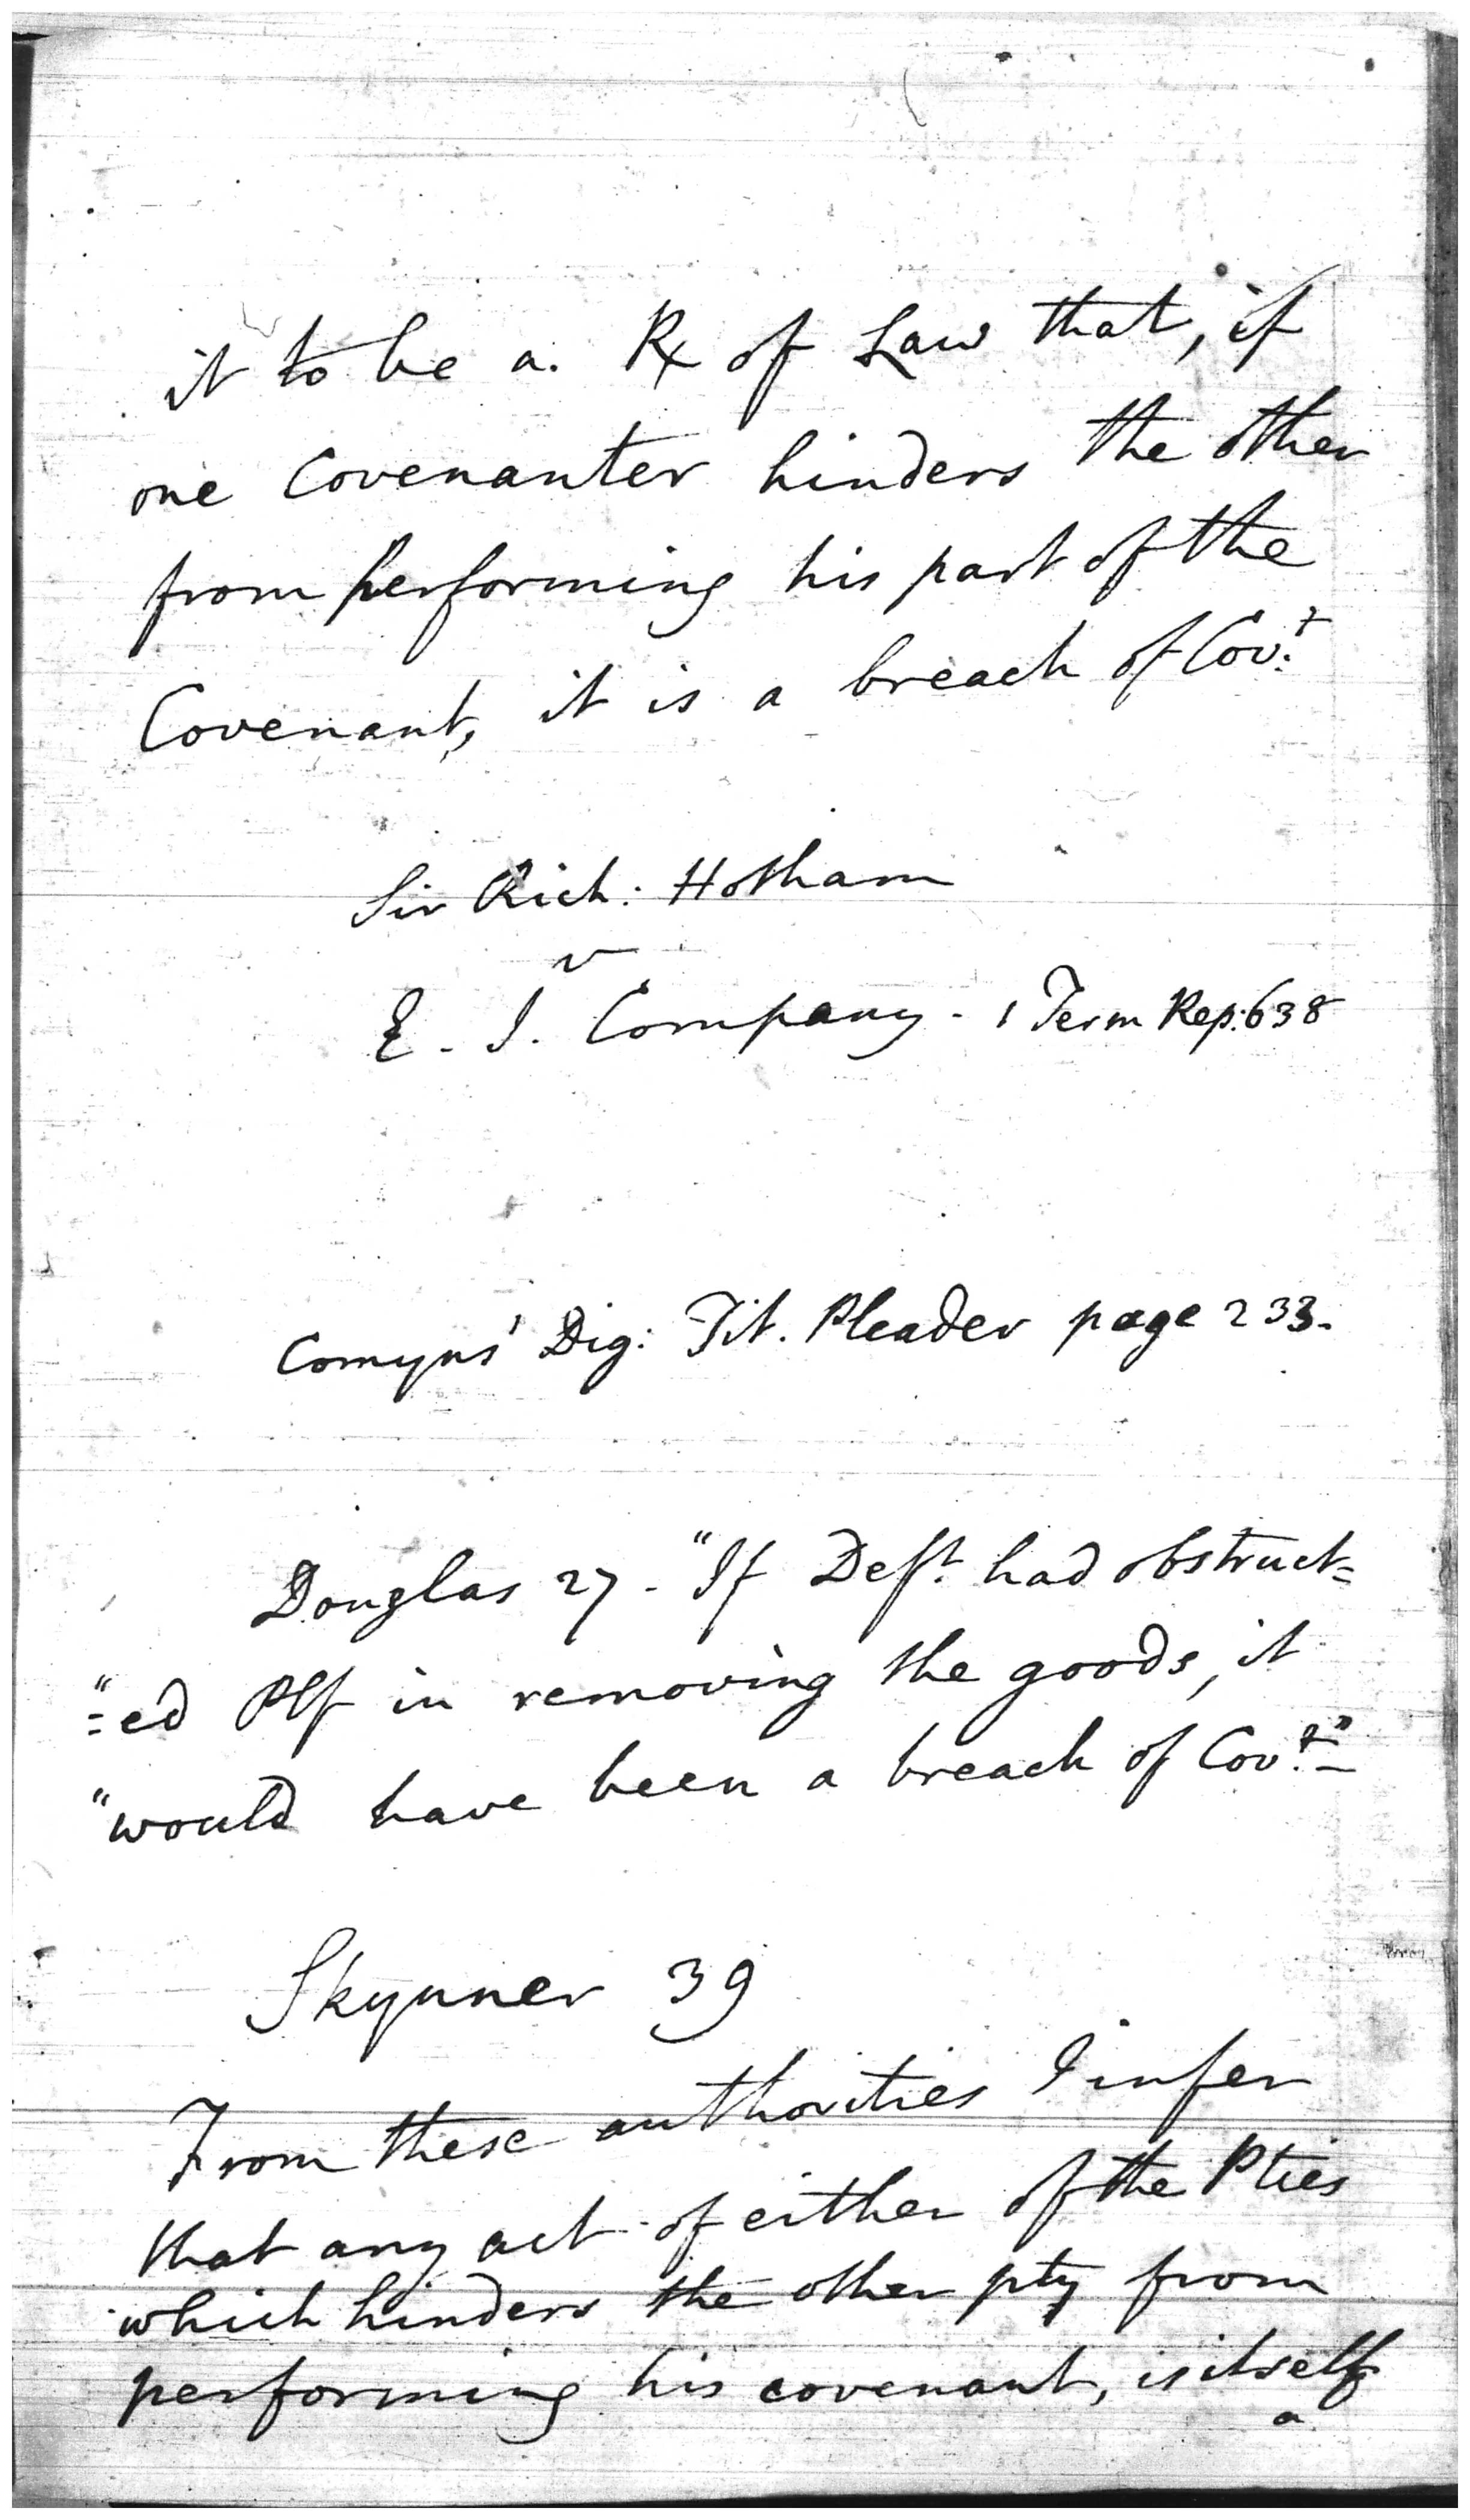 it to be a. Rx of Law that, if
one Covenanter hinders the other
from performing his part of the
Covenant, it is a breach of Cov.t
Sir Rich: Hotham
v
E. I. Company - 1 Term Rep: 638
Comyns' Dig: Tit. Pleader page 233.
Douglas 27 - "If Deft. had obstruct=
"=ed Plf in removing the goods, it
"would have been a breach of Cov.t" -
Skynner 39
From these authorities I infer
that any act of either of the Pties
which hinders the other pty from
performing his covenant, is itself
a